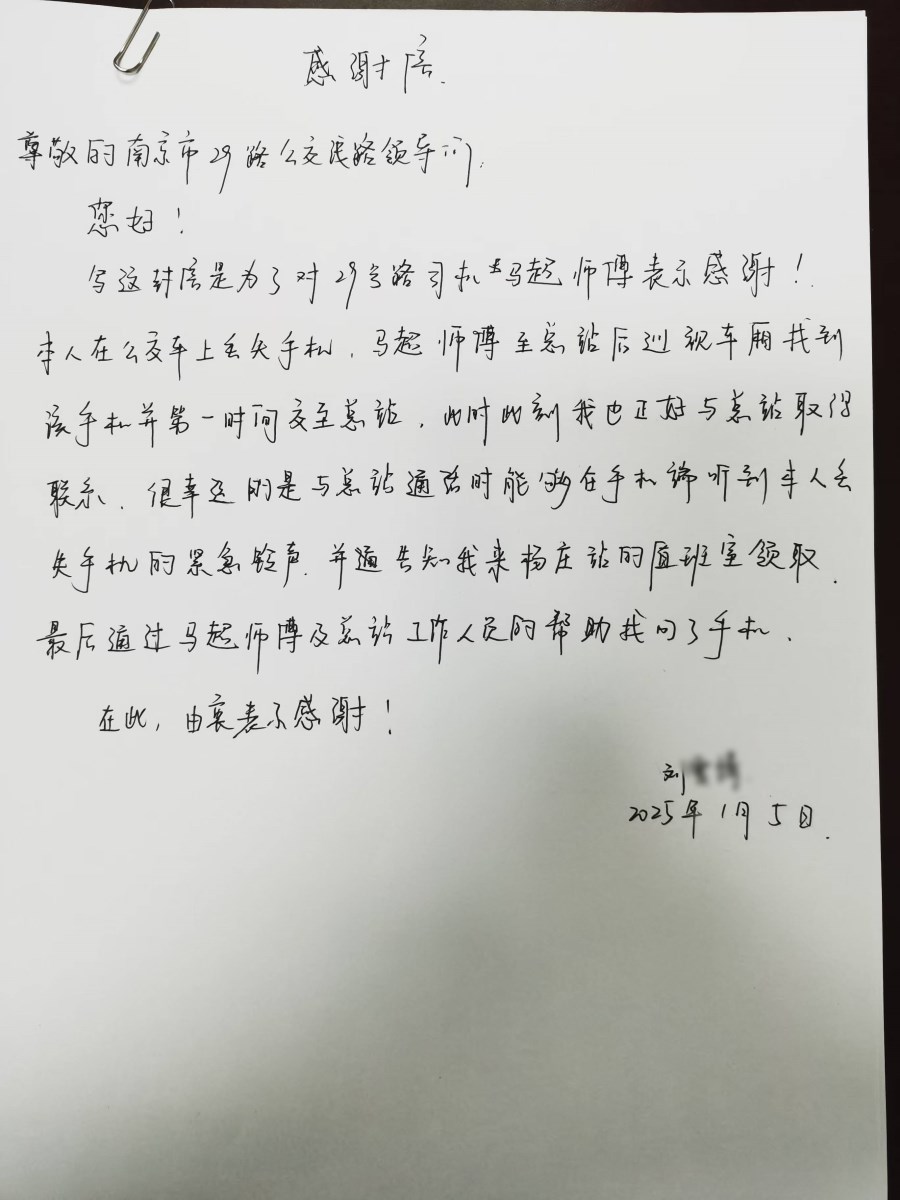 感谢信.
尊敬的南京市29路公交线路领导们:
您好!
写这封信是为了对29号路司机马超师傅表示感谢!
本人在公交车上丢失手机,马超师傅至总站后巡视车厢找到
该手机并第一时间交至总站,此时此刻我也正好与总站取得
联系、很幸运的是与总站通话时能够在手机端听到本人丢
失手机的紧急铃声.并通告知我来杨庄站的值班室领取.
最后通过马超师傅及总站工作人员的帮助找回了手机.
在此,由衷表示感谢!
刘
2025年1月5日.